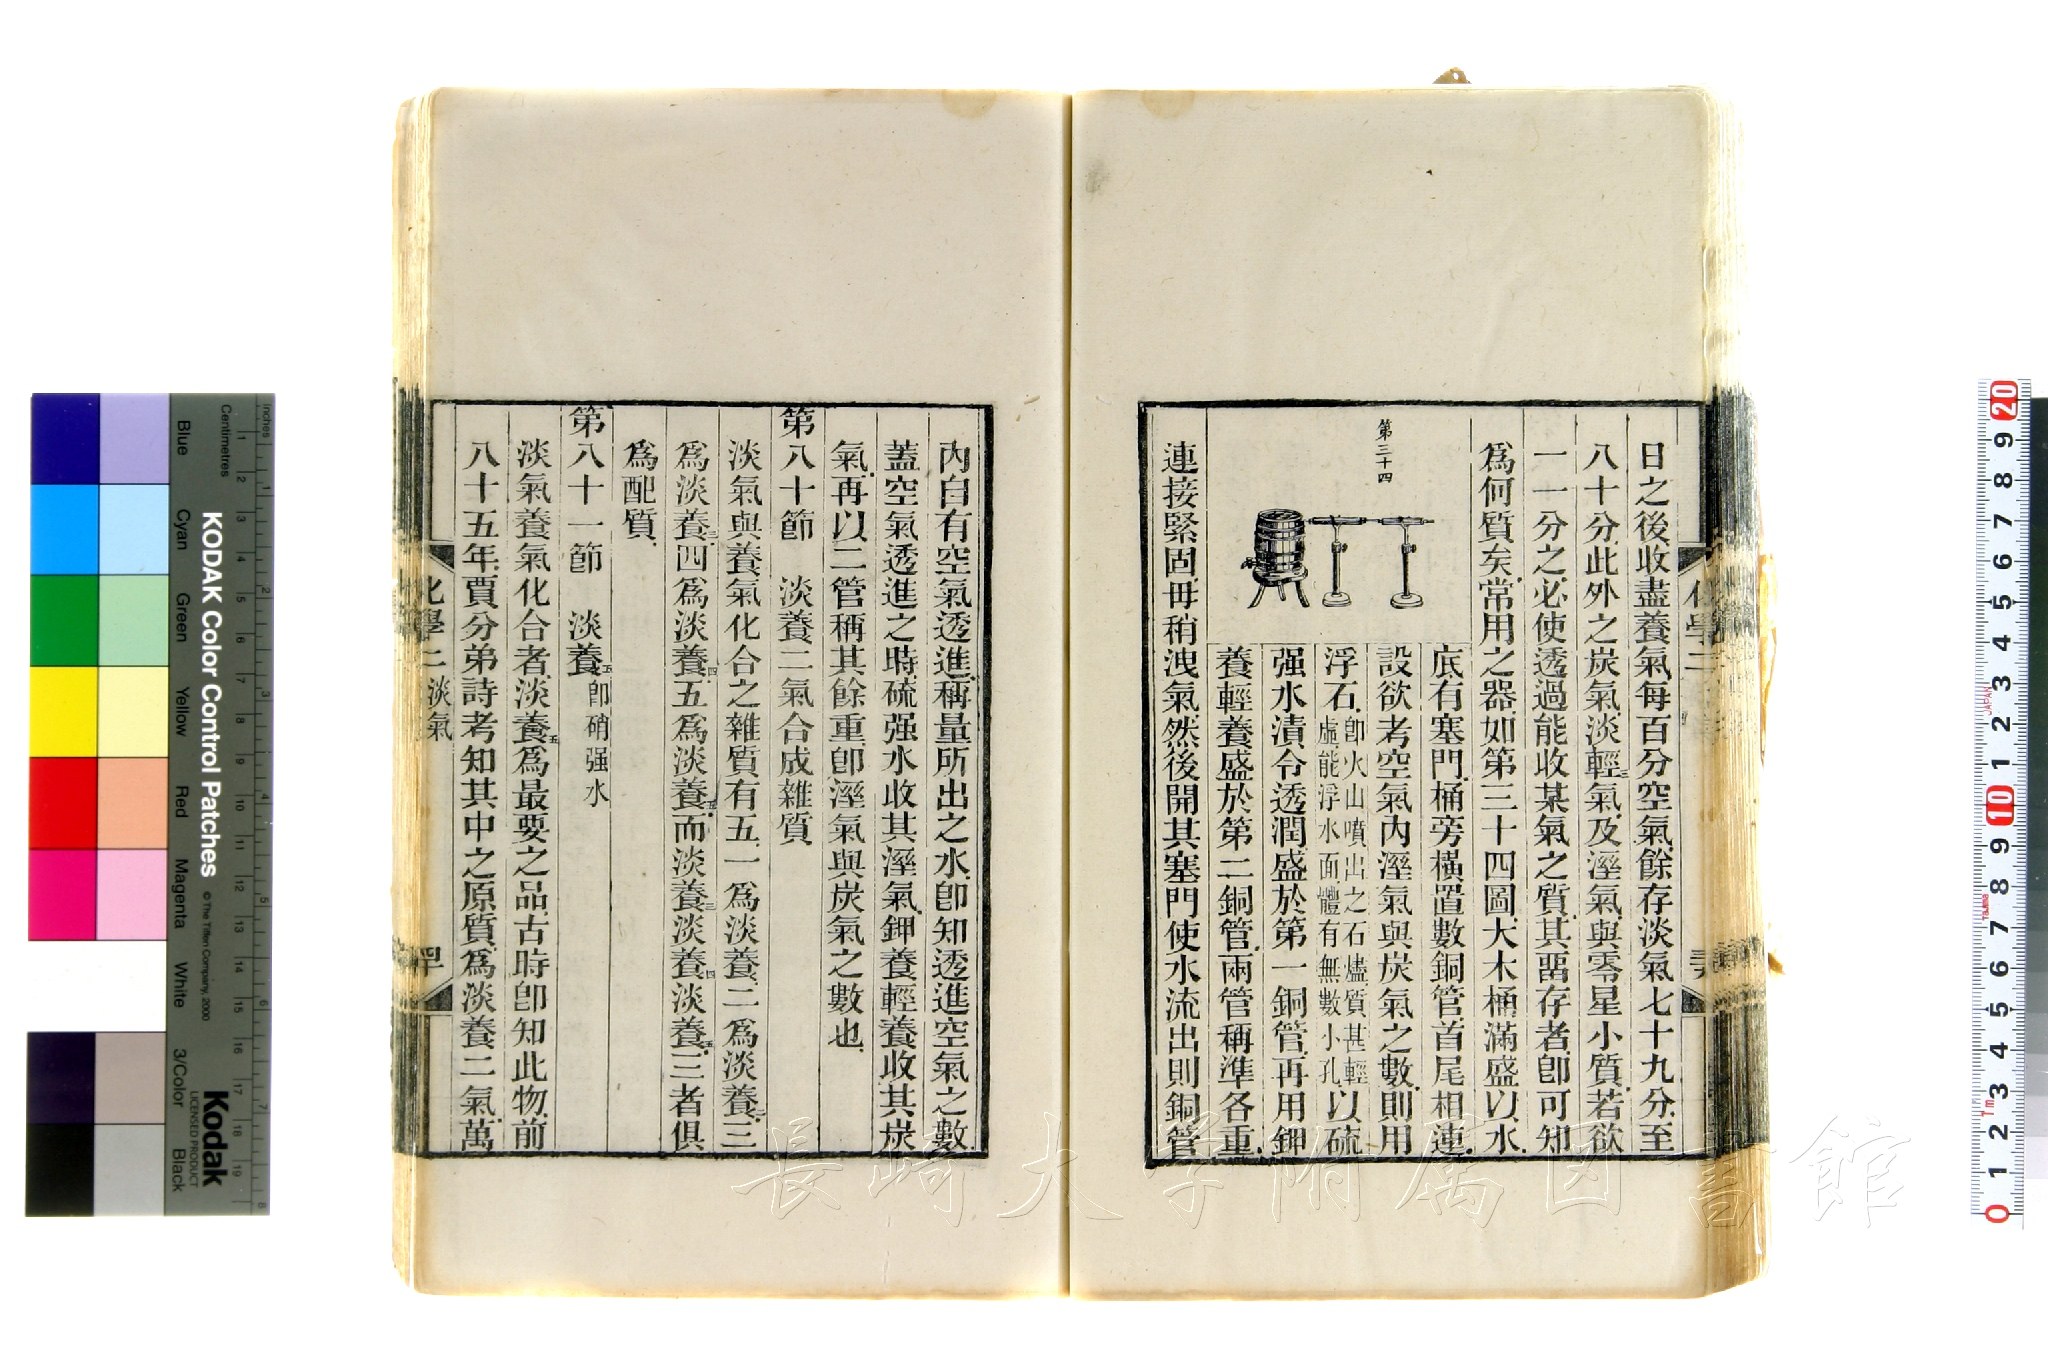 日之後收盡養氣每百分空氣餘存淡氣七十九分至
八十分此外之炭氣淡輕三氣及溼氣與零星小質若欲
一一分之必使透過能收某氣之質其畱存者卽可知
爲何質矣常用之器如第三十四圖大木桶滿盛以水
第三十四
底有塞門桶旁橫置數銅管首尾相連
設欲考空氣內溼氣與炭氣之數則用
浮石卽火山噴出之石燼質甚輕虛能浮水面體有無數小孔以硫
强水漬令透潤盛於第一銅管再用鉀
養輕養盛於第二銅管兩管稱準各重
連接緊固毋稍洩氣然後開其塞門使水流出則銅管
化學二
內自有空氣透進稱量所出之水卽知透進空氣之數
蓋空氣透進之時硫强水收其溼氣鉀養輕養收其炭
氣再以二管稱其餘重卽溼氣與炭氣之數也
第八十節 淡養二氣合成雜質
淡氣與養氣化合之雜質有五一爲淡養二爲淡養二三
爲淡養三四爲淡養四五爲淡養五而淡養三淡養四淡養五三者俱
爲配質
第八十一節 淡養五卽硝强水
淡氣養氣化合者淡養五爲最要之品古時卽知此物前
八十五年賈分弟詩考知其中之原質爲淡養二氣萬
化學二 淡氣
長崎大学附属図書館
KODAK Color Control Patches
© The Tiffen Company, 2000
Kodak
LICENSED PRODUCT
Inches
Centimetres
Blue
Cyan
Green
Yellow
Red
Magenta
White
3/Color
Black
1 2 3 4 5 6 7 8
1 2 3 4 5 6 7 8 9 10 11 12 13 14 15 16 17 18 19
0 1 2 3 4 5 6 7 8 9 10 1 2 3 4 5 6 7 8 9 20
JAPAN